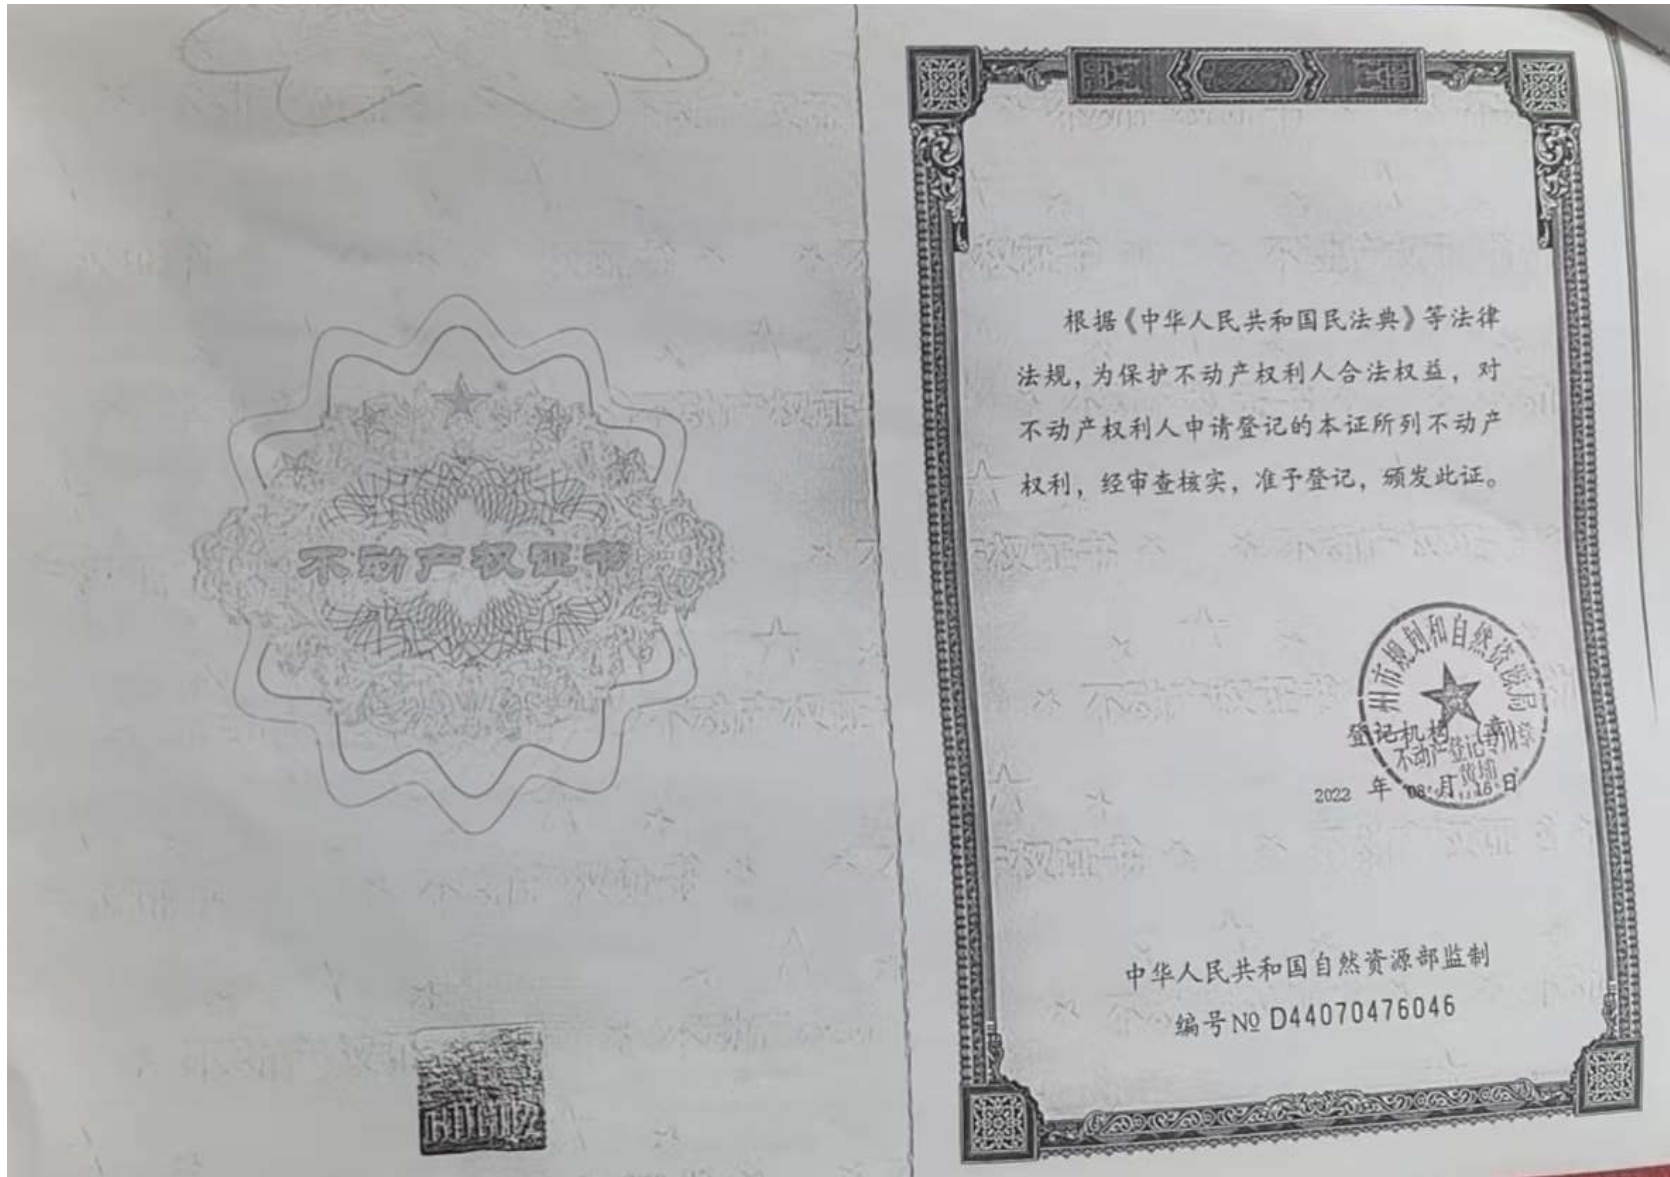 不动产权证书
根据《中华人民共和国民法典》等法律
法规，为保护不动产权利人合法权益，对
不动产权利人申请登记的本证所列不动产
权利，经审查核实，准予登记，颁发此证。
州市规划和自然资源局
登记机构（章）
不动产登记专用章
2022 年 08 月 16 日
中华人民共和国自然资源部监制
编号№ D44070476046